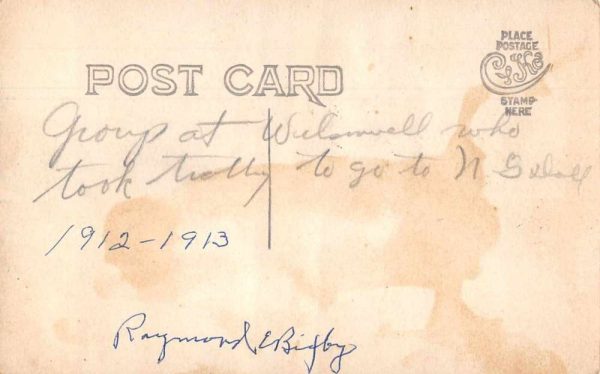 POST CARD
PLACE
POSTAGE
STAMP
HERE
Group at who
took trolley to go to N
1912-1913
Raymond E Bigby